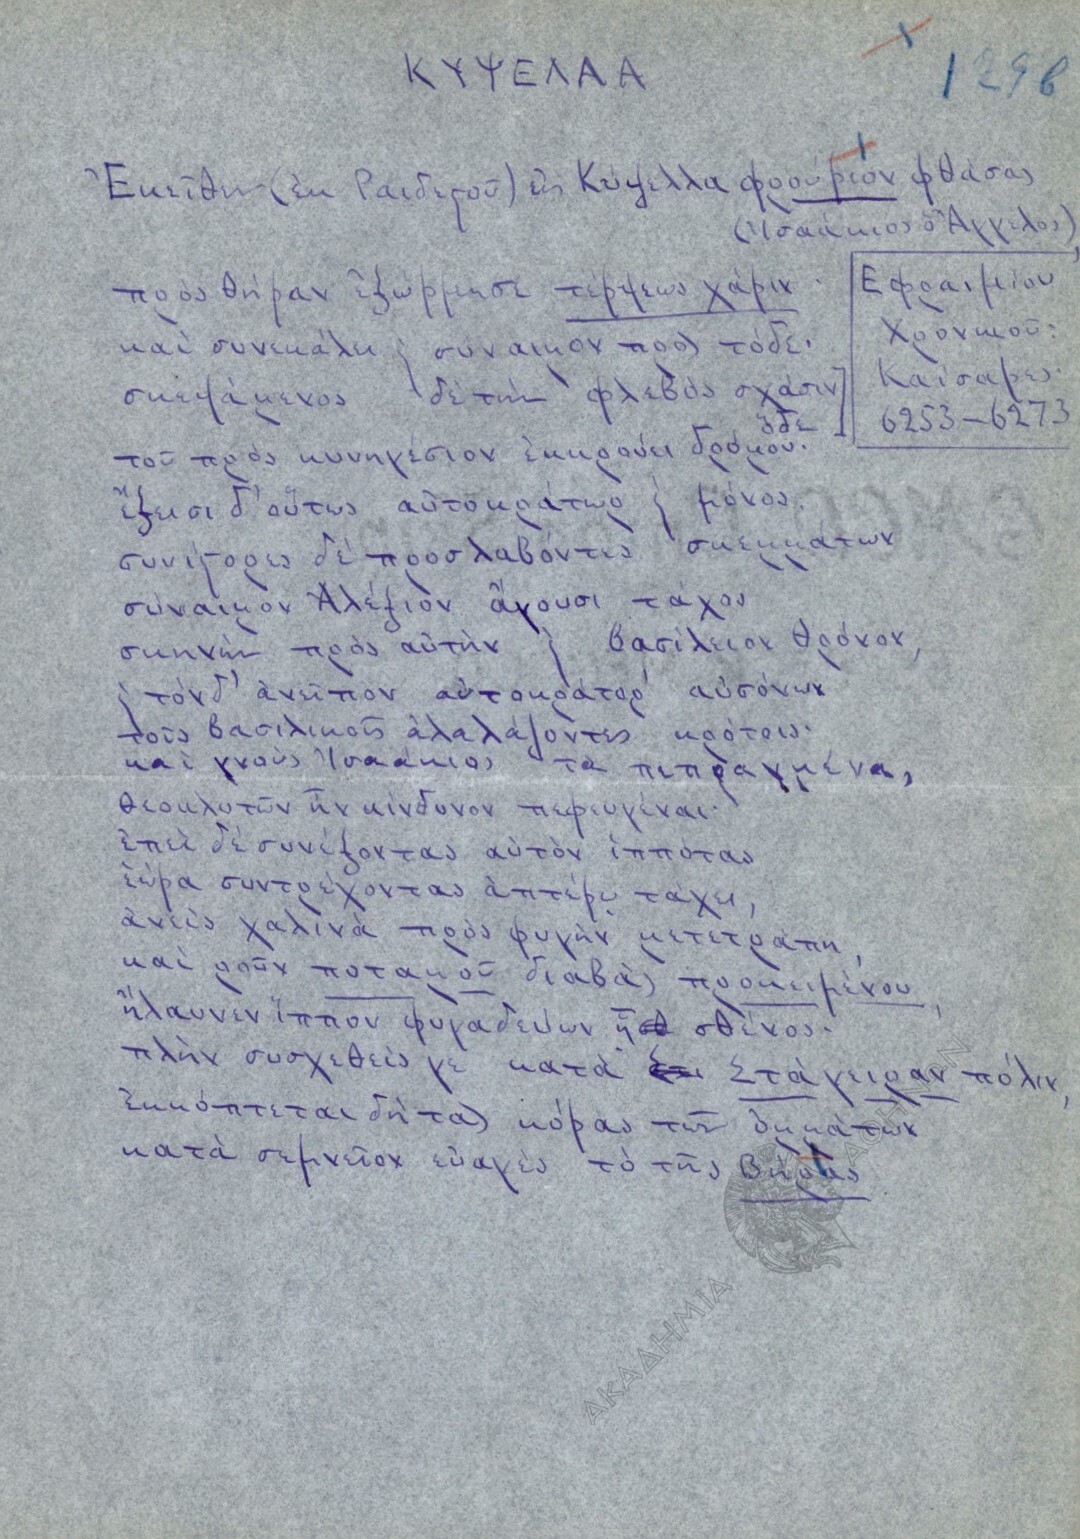 ΚΥΨΕΛΛΑ
129β
Ἐκεῖθεν (ἐκ Ραιδεστοῦ) εἰς Κύψελλα φρούριον φθάσας
(Ἰσαάκιος ὁ Ἄγγελος),
πρὸς θήραν ἐξώρμησε τέρψεως χάριν·
καὶ συνεκάλει συναιμον πρὸς τόδε·
σκεψάμενος δὲ τὴν φλεβὸς σχάσιν
ὅδε
τοῦ πρὸς κυνηγέσιον ἐκκρούει δρόμου·
Ἐφραιμίου
Χρονικοῦ:
Καίσαρες·
6253–6273
ἔξεισι δ' οὕτως αὐτοκράτωρ μόνος.
συνίστορες δὲ προσλαβόντες σκεμμάτων
σύναιμον Ἀλέξιον ἄγουσι τάχος
σκηνὴν πρὸς αὐτὴν βασίλειον θρόνον,
τόνδ' ἀνεῖπον αὐτοκράτορ' αὐσόνων
τοῖς βασιλικοῖς ἀλαλάζοντες κρότοις·
καὶ γνοὺς Ἰσαάκιος τὰ πεπραγμένα,
θεοκλυτῶν ἦν κίνδυνον πεφευγέναι·
ἐπεὶ δὲ συνέξοντας αὐτὸν ἱππότας
ἑώρα συντρέχοντας ἀπτέρῳ τάχει,
ἀνεὶς χαλινὰ πρὸς φυγὴν μετετράπη,
καὶ ροῦν ποταμοῦ διαβὰς προκειμένου,
ἤλαυνεν ἵππον φυγαδεύων ᾗ σθένος·
πλὴν συσχεθείς γε κατὰ Στάγειραν πόλιν,
ἐκκόπτεται δὴ τὰς κόρας τῶν ὀμμάτων
κατὰ σεμνεῖον εὐαγὲς τὸ τῆς Βήρας
ΑΚΑΔΗΜΙΑ ΑΘΗΝΩΝ